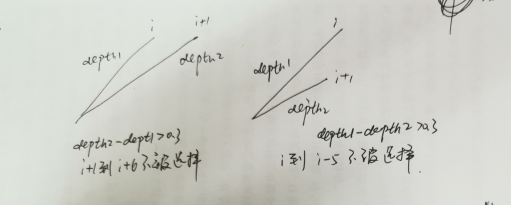 i i+1
depth1 depth2
depth2-dept1>0.3
i+1到i+6不被选择
i
depth1 i+1
depth2
depth1-depth2>0.3
i到i-5不被选择